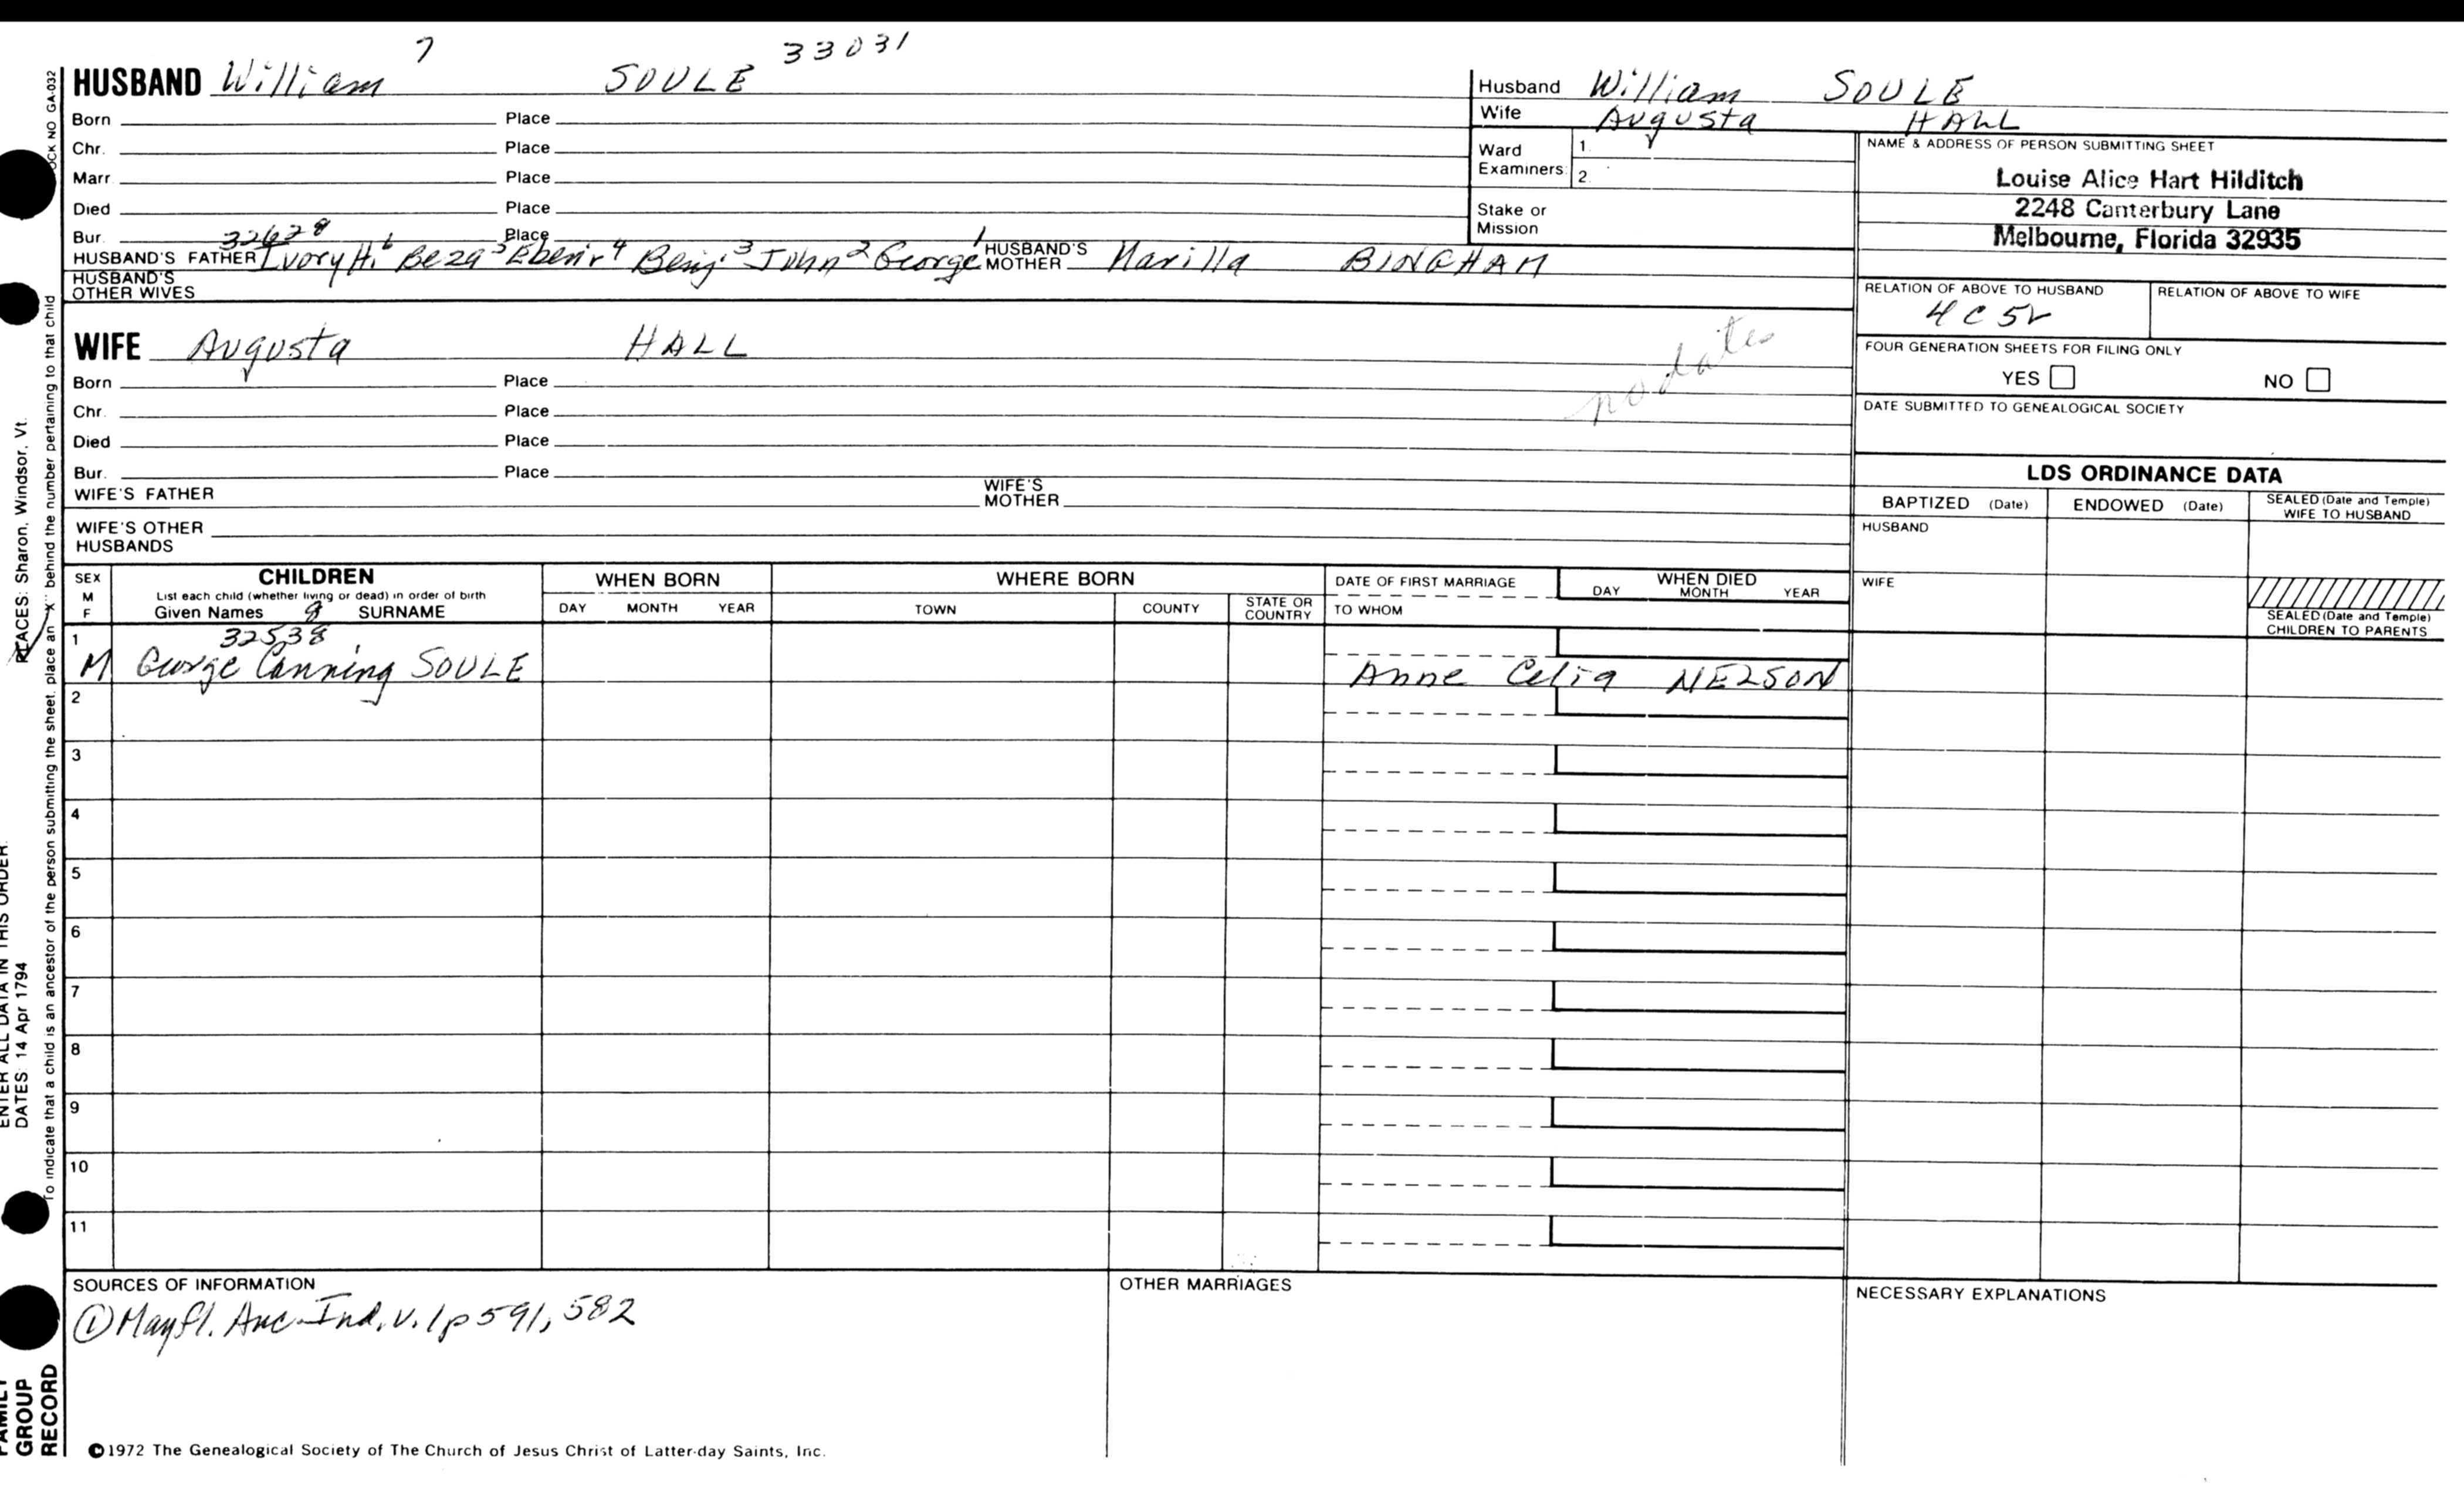 7
33031
HUSBAND William SOULE
Born Place
Chr. Place
Marr. Place
Died Place
Bur. Place
32628
HUSBAND'S FATHER Ivory H.6 Beza5 Ebenr4 Benj.3 John2 George1 HUSBAND'S MOTHER Marilla BINGHAM
HUSBAND'S OTHER WIVES
WIFE Augusta HALL
no dates
Born Place
Chr. Place
Died Place
Bur. Place
WIFE'S FATHER WIFE'S MOTHER
WIFE'S OTHER HUSBANDS
Husband William SOULE
Wife Augusta HALL
Ward Examiners: 1. 2.
Stake or Mission
NAME & ADDRESS OF PERSON SUBMITTING SHEET
Louise Alice Hart Hilditch
2248 Canterbury Lane
Melbourne, Florida 32935
RELATION OF ABOVE TO HUSBAND RELATION OF ABOVE TO WIFE
4C5r
FOUR GENERATION SHEETS FOR FILING ONLY
YES NO
DATE SUBMITTED TO GENEALOGICAL SOCIETY
LDS ORDINANCE DATA
BAPTIZED (Date) ENDOWED (Date) SEALED (Date and Temple) WIFE TO HUSBAND
HUSBAND
WIFE
SEALED (Date and Temple) CHILDREN TO PARENTS
SEX M F
CHILDREN
List each child (whether living or dead) in order of birth
Given Names SURNAME
WHEN BORN
DAY MONTH YEAR
WHERE BORN
TOWN COUNTY STATE OR COUNTRY
DATE OF FIRST MARRIAGE
TO WHOM
WHEN DIED
DAY MONTH YEAR
8
32538
1 M George Canning SOULE Anne Celia NELSON
2
3
4
5
6
7
8
9
10
11
SOURCES OF INFORMATION
① Mayfl. Anc. Ind. v. 1 p 591, 582
OTHER MARRIAGES
NECESSARY EXPLANATIONS
©1972 The Genealogical Society of The Church of Jesus Christ of Latter-day Saints, Inc.
OCK NO GA-032
To indicate that a child is an ancestor of the person submitting the sheet, place an "X" behind the number pertaining to that child
PLACES: Sharon, Windsor, Vt.
ENTER ALL DATA IN THIS ORDER:
DATES: 14 Apr 1794
FAMILY
GROUP
RECORD